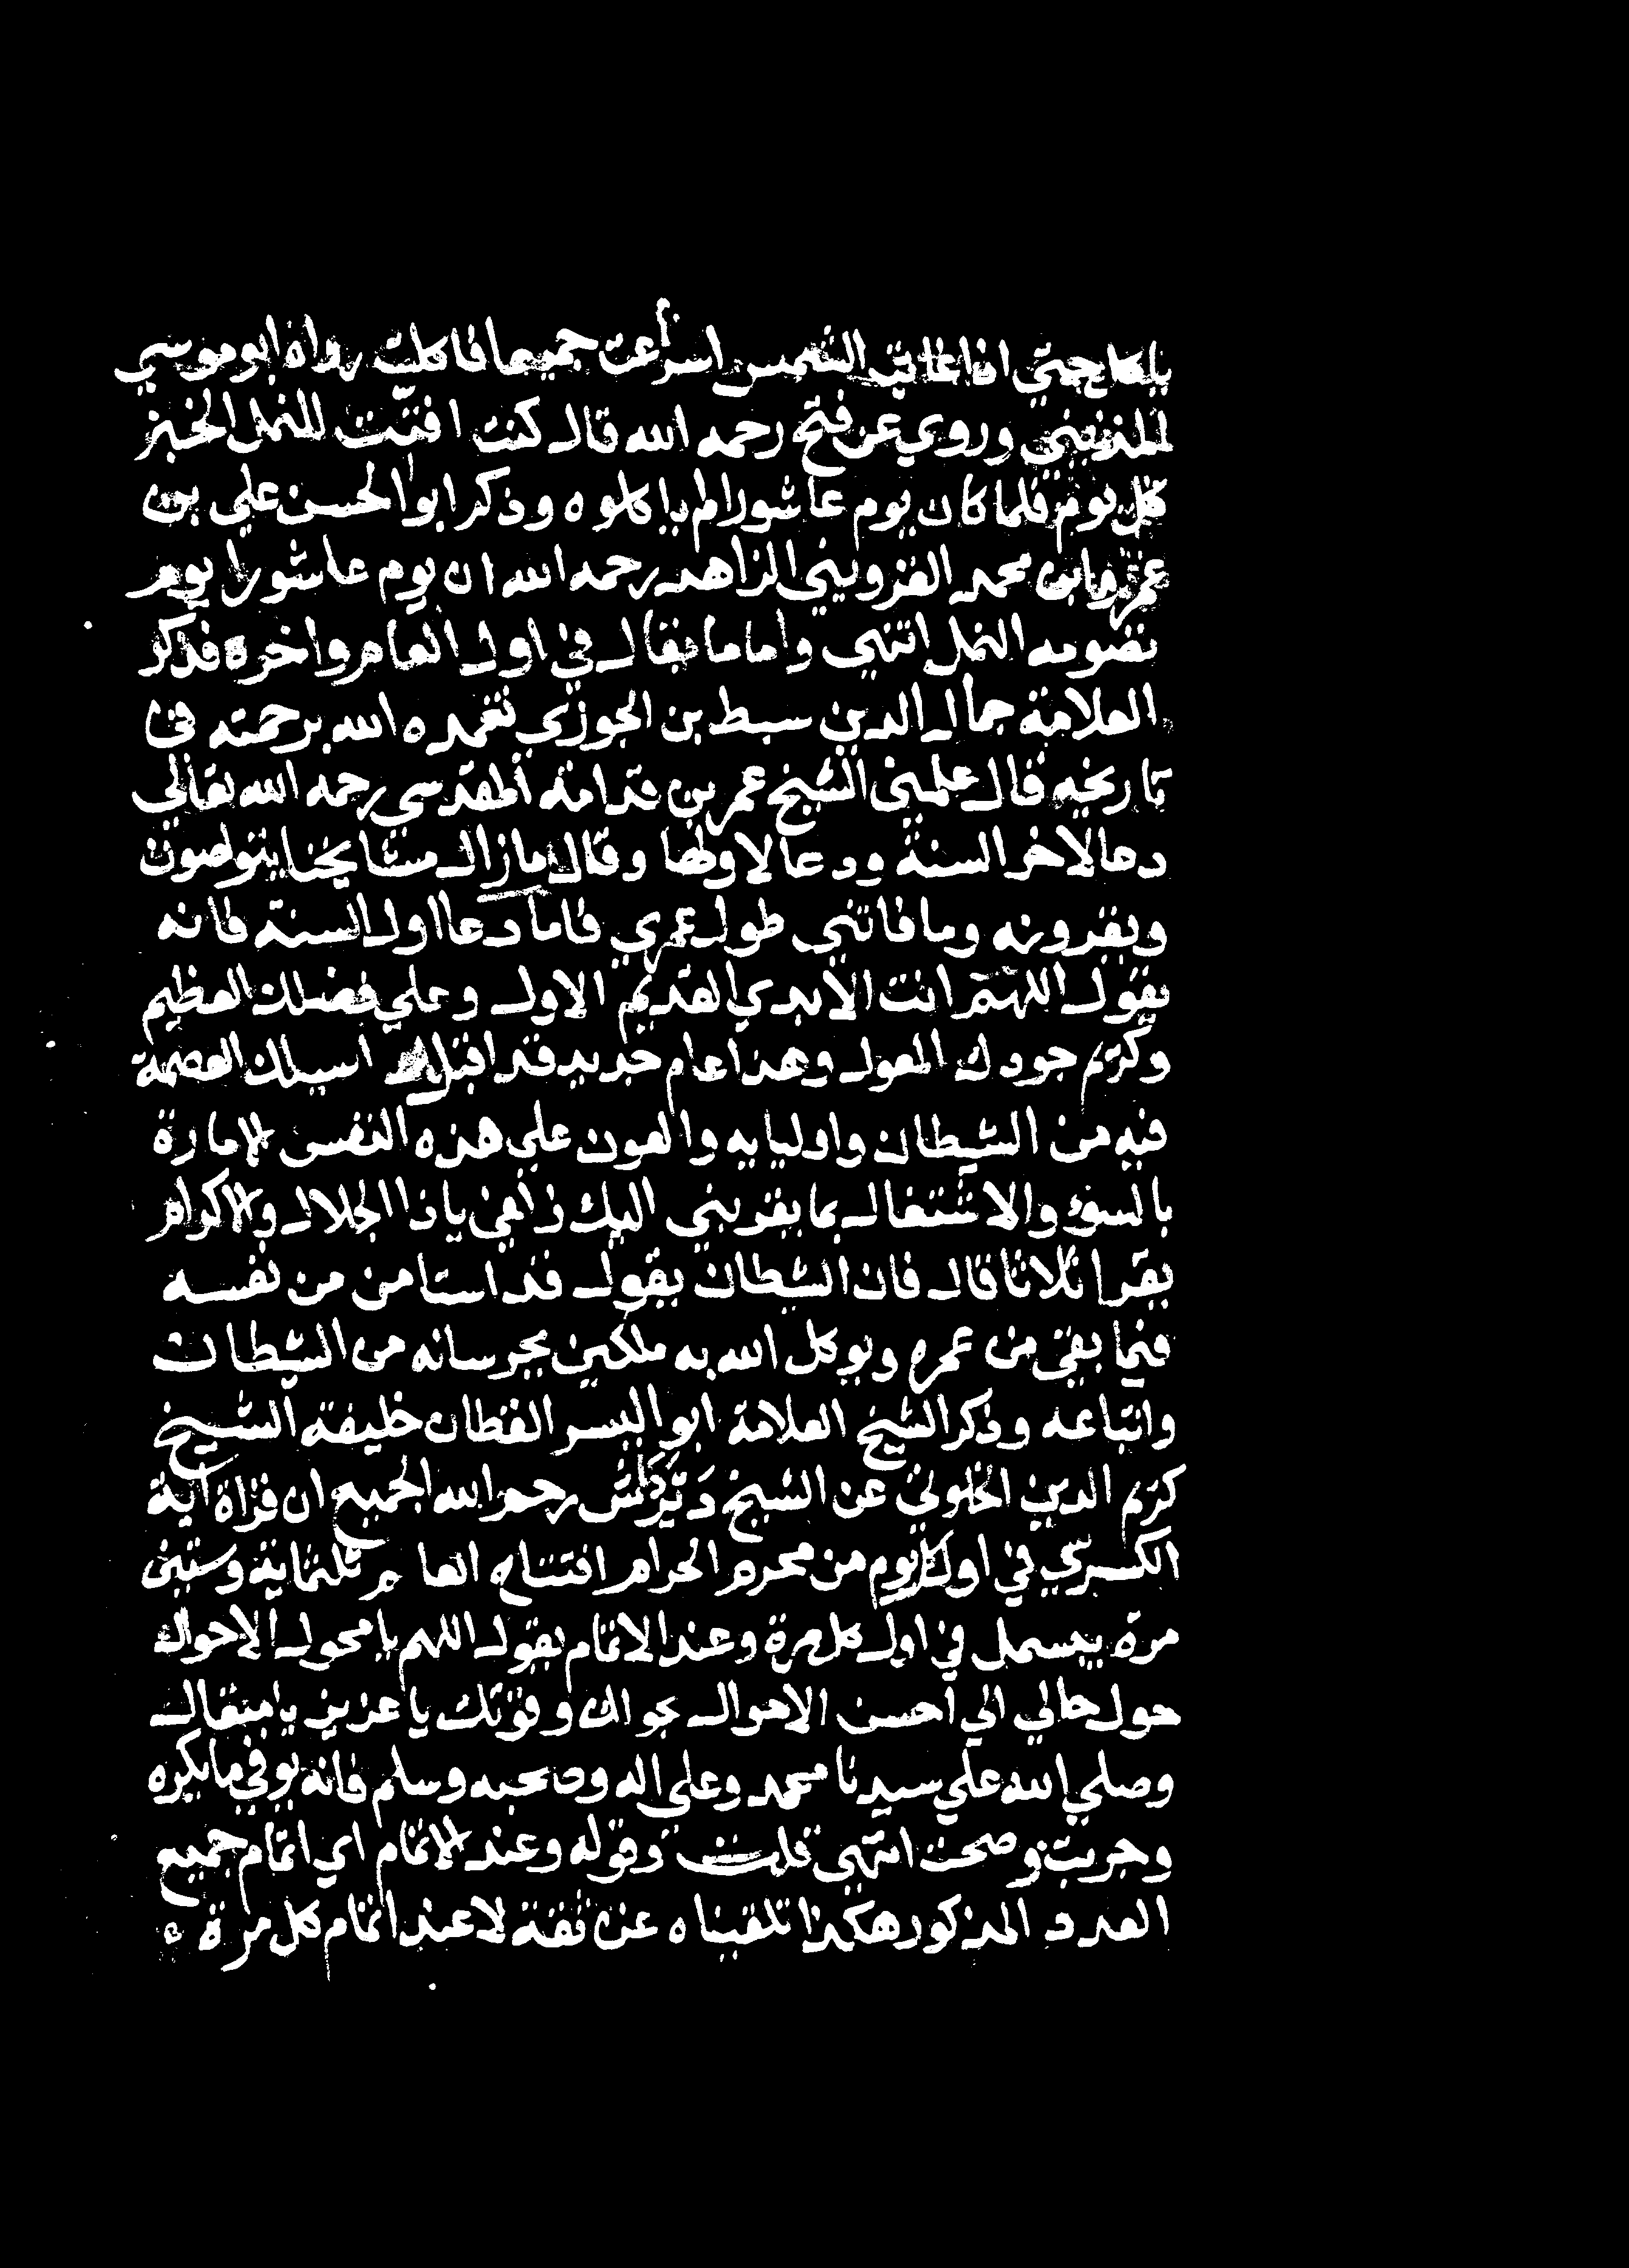 ياكل حتي اذا غابت الشمس اسرعت جميعا فاكلت رواه ابو موسي
المديني وروي عن فتح رحمه الله قال كنت افتت للنمل الخبز
كل يوم فلما كان يوم عاشورا لم ياكلوه وذكر ابوالحسن علي بن
عمر بن محمد القزويني الزاهد رحمه الله ان يوم عاشورا يوم
تصومه النمل انتهي واما ما يقال في اول العام واخره فذكر
العلامة جمال الدين سبط بن الجوزي تغمده الله برحمته في
تاريخه قال علمني الشيخ عمر بن قدامة المقدسي رحمه الله تعالي
دعا لاخر السنة ودعا لاولها وقال مازال مشايخنا يتواصون
ويقرونه وما فاتني طول عمري فاما دعا اول السنة فانه
يقول اللهم انت الابدي القديم الاول وعلي فضلك العظيم
وكرم جودك المعول وهذا عام جديد قد اقبل اسيلك العصمة
فيه من الشيطان واوليايه والعون علي هذه النفس الامارة
بالسوء والاشتغال بما يقربني اليك زلفي ياذا الجلال والاكرام
يقرا ثلاثا قال فان الشطان يقول قد استامن من نفسه
فيما بقي من عمره ويوكل الله به ملكين يحرسانه من الشيطان
واتباعه وذكر الشيخ العلامة ابو اليسر القطان خليفة الشيخ
كريم الدين الخلوتي عن الشيخ دمرداش رحم الله الجميع ان قراة اية
الكسرسي في اول كل يوم من محرم الحرام افتتاح العام ثلثماية وستين
مرة يبسمل في اول كل مرة وعند الاتمام يقول اللهم يا محول الاحوال
حول حالي الي احسن الاحوال بحولك وقوتك يا عزيز يا متعال
وصلي الله علي سيدنا محمد وعلي اله وصحبه وسلم فانه يوقي ما يكره
وجربت وصحت انتهي قلت وقوله وعند الاتمام اي اتمام جميع
العدد المذكور هكذا تلقيناه عن ثقة لا عند اتمام كل مرة ه